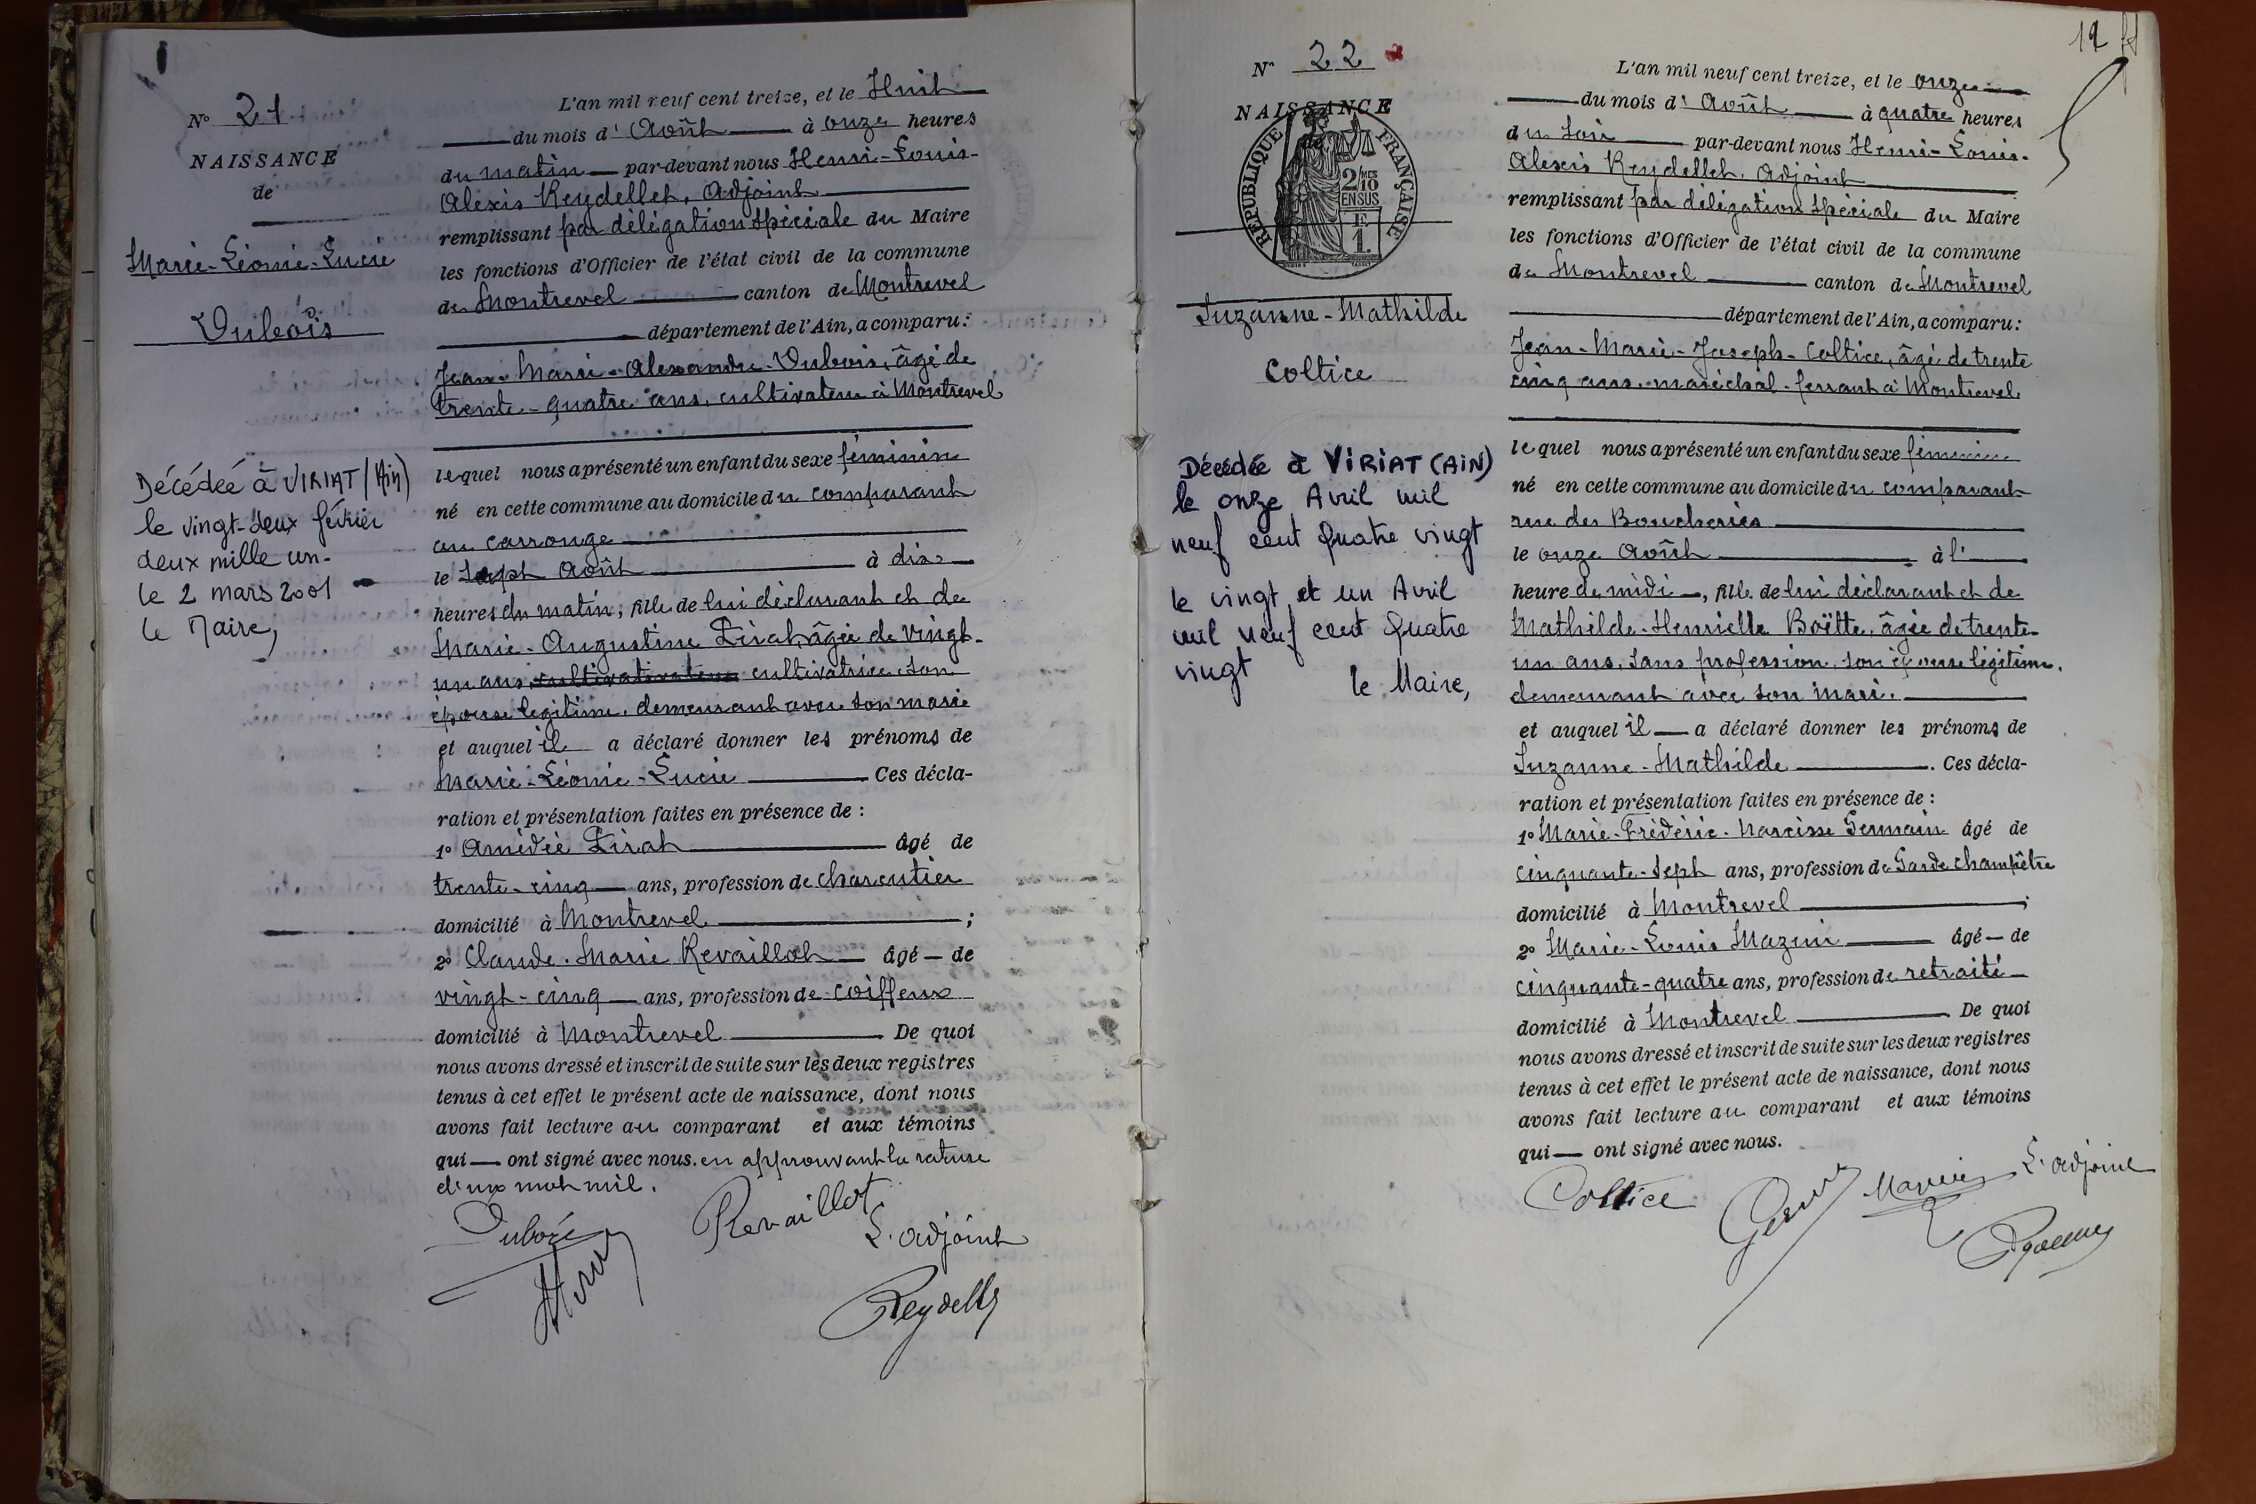 N° 21
NAISSANCE
de
Marie-Léonie-Lucie
Dubois
Décédée à VIRIAT (Ain)
le vingt-deux février
deux mille un-
le 2 mars 2001
le Maire,
L'an mil neuf cent treize, et le Huit
du mois d'Août à onze heures
du matin par-devant nous Henri-Louis-
Alexis Reydellet, Adjoint
remplissant par délégation spéciale du Maire
les fonctions d'Officier de l'état civil de la commune
de Montrevel canton de Montrevel
département de l'Ain, a comparu:
Jean-Marie-Alexandre Dubois, âgé de
trente-quatre ans, cultivateur à Montrevel
lequel nous a présenté un enfant du sexe féminin
né en cette commune au domicile du comparant
au carrouge
le Sept Août à dix
heures du matin, fille de lui déclarant et de
Marie-Augustine Pirat, âgée de vingt-
un ans, cultivatrice son
épouse légitime, demeurant avec son mari
et auquel il a déclaré donner les prénoms de
Marie-Léonie-Lucie Ces décla-
ration et présentation faites en présence de :
1° Amédée Pirat âgé de
trente-cinq ans, profession de charcutier
domicilié à Montrevel ;
2° Claude-Marie Revaillot âgé de
vingt-cinq ans, profession de coiffeur
domicilié à Montrevel De quoi
nous avons dressé et inscrit de suite sur les deux registres
tenus à cet effet le présent acte de naissance, dont nous
avons fait lecture au comparant et aux témoins
qui ont signé avec nous. en approuvant la rature
d'un mot nul.
Dubois Revaillot
L'adjoint
Reydellet
12
N° 22
NAISSANCE
de
REPUBLIQUE FRANÇAISE
2/10 MES
EN SUS
1 F.
Suzanne-Mathilde
Coltice
Décédée à VIRIAT (AIN)
le onze Avril mil
neuf cent Quatre vingt
le vingt et un Avril
mil neuf cent Quatre
vingt
le Maire,
L'an mil neuf cent treize, et le onze
du mois d'Août à quatre heures
du soir par-devant nous Henri-Louis-
Alexis Reydellet, Adjoint
remplissant par délégation spéciale du Maire
les fonctions d'Officier de l'état civil de la commune
de Montrevel canton de Montrevel
département de l'Ain, a comparu:
Jean-Marie-Joseph-Coltice, âgé de trente
cinq ans, maréchal-ferrant à Montrevel
lequel nous a présenté un enfant du sexe féminin
né en cette commune au domicile du comparant
rue des Boucheries
le onze Août à l'
heure de midi, fille de lui déclarant et de
Mathilde-Henriette Boëtte, âgée de trente-
un ans, sans profession, son épouse légitime,
demeurant avec son mari.
et auquel il a déclaré donner les prénoms de
Suzanne-Mathilde. Ces décla-
ration et présentation faites en présence de :
1° Marie-Frédéric-Narcisse Germain âgé de
cinquante-sept ans, profession de Garde champêtre
domicilié à Montrevel ;
2° Marie-Louis Mazuir âgé de
cinquante-quatre ans, profession de retraité
domicilié à Montrevel De quoi
nous avons dressé et inscrit de suite sur les deux registres
tenus à cet effet le présent acte de naissance, dont nous
avons fait lecture au comparant et aux témoins
qui ont signé avec nous.
Coltice L'adjoint